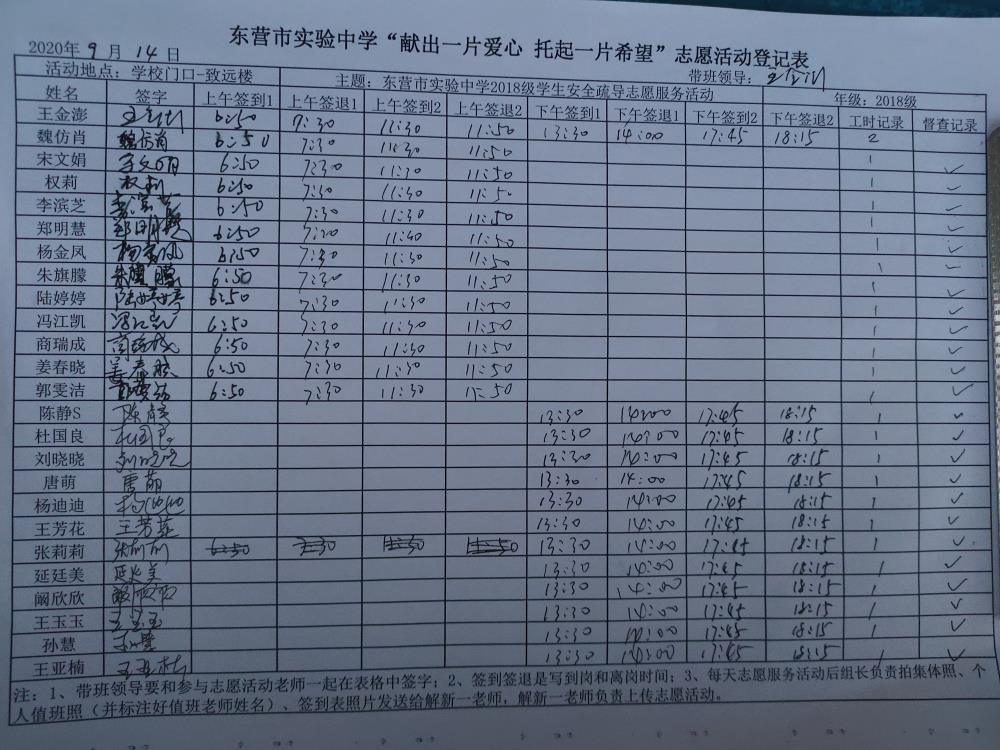 东营市实验中学“献出一片爱心 托起一片希望”志愿活动登记表
2020年 9 月 14 日 带班领导:
活动地点:学校门口-致远楼 主题:东营市实验中学2018级学生安全疏导志愿服务活动 年级:2018级
姓名 签字 上午签到1 上午签退1 上午签到2 上午签退2 下午签到1 下午签退1 下午签到2 下午签退2 工时记录 督查记录
王金澎 6:50 7:30 11:30 11:50 13:30 14:00 17:45 18:15 2
魏仿肖 魏仿肖 6:50 7:30 11:30 11:50 1 ✓
宋文娟 宋文娟 6:50 7:30 11:30 11:50 1 ✓
权莉 权莉 6:50 7:30 11:30 11:50 1 ✓
李滨芝 李滨芝 6:50 7:30 11:30 11:50 1 ✓
郑明慧 郑明慧 6:50 11:40 11:50 1 ✓
杨金凤 杨金凤 6:50 7:30 11:40 11:50 1 ✓
朱旗朦 朱旗朦 6:50 7:30 11:30 11:50 1 ✓
陆婷婷 陆婷婷 6:50 7:30 11:30 11:50 1 ✓
冯江凯 冯江凯 6:50 7:30 11:30 11:50 1 ✓
商瑞成 商瑞成 6:50 7:30 11:30 11:50 1 ✓
姜春晓 姜春晓 6:50 7:30 11:30 11:50 1 ✓
郭雯洁 郭雯洁 6:50 7:30 11:30 11:50 1 ✓
陈静S 陈静 13:30 14:00 17:45 18:15 1 ✓
杜国良 杜国良 13:30 14:00 17:45 18:15 1 ✓
刘晓晓 刘晓晓 13:30 14:00 17:45 18:15 1 ✓
唐萌 唐萌 13:30 14:00 17:45 18:15 1 ✓
杨迪迪 杨迪迪 13:30 14:00 17:45 18:15 1 ✓
王芳花 王芳花 13:30 14:00 17:45 18:15 1 ✓
张莉莉 张莉莉 13:30 14:00 17:45 18:15 1 ✓
延廷美 延廷美 13:30 14:00 17:45 18:15 1 ✓
阚欣欣 阚欣欣 13:30 14:00 17:45 18:15 1 ✓
王玉玉 王玉玉 13:30 14:00 17:45 18:15 1 ✓
孙慧 孙慧 13:30 14:00 17:45 18:15 1 ✓
王亚楠 王亚楠 13:30 14:00 17:45 18:15 1 ✓
注:1、带班领导要和参与志愿活动老师一起在表格中签字;2、签到签退是写到岗和离岗时间;3、每天志愿服务活动后组长负责拍集体照、个
人值班照(并标注好值班老师姓名)、签到表照片发送给解新一老师,解新一老师负责上传志愿活动。